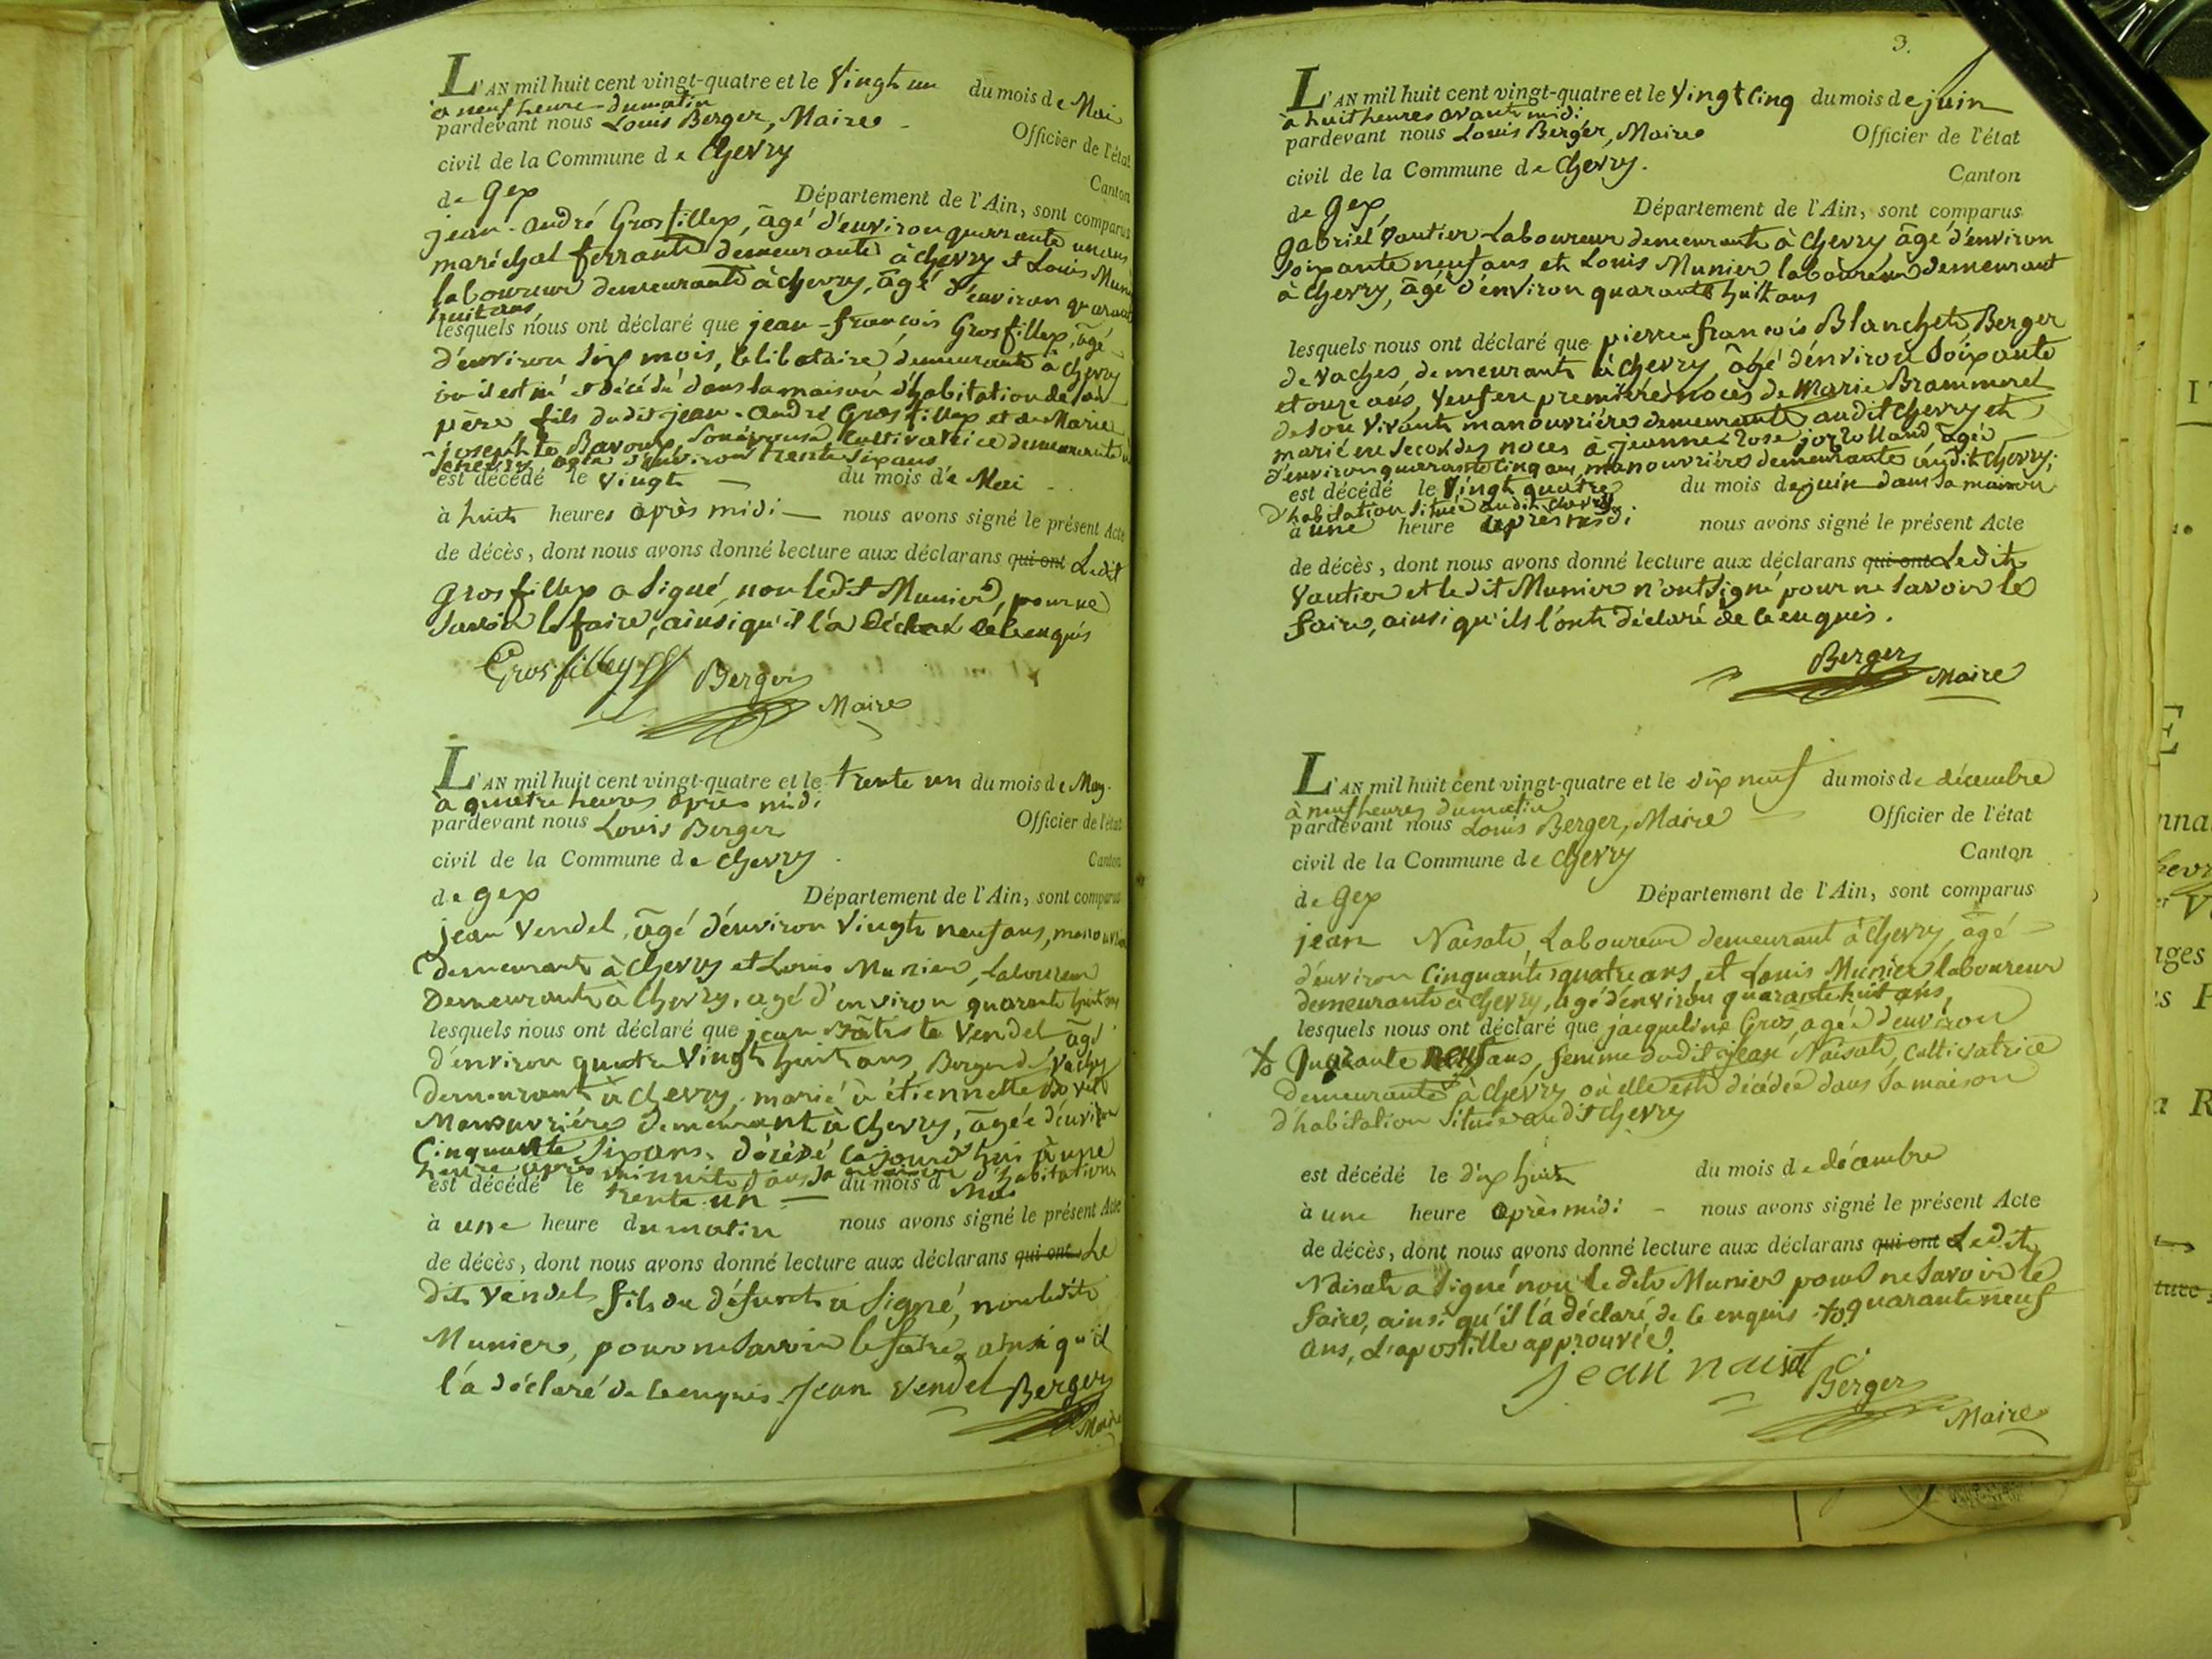 L'AN mil huit cent vingt-quatre et le Vingt un du mois de Mai
à neuf heure du matin
pardevant nous Louis Berger, Maire Officier de l'état
civil de la Commune de Chevry Canton
de Gex Département de l'Ain, sont comparus
jean-andré Grosfilley, âgé d'environ quarrante un ans
maréchal ferrant demeurant à chevry et Louis
laboureur demeurant à chevry, âgé d'environ
huit ans,
lesquels nous ont déclaré que jean-françois Grosfilley, âgé
d'environ Six mois, Celibataire, demeurant à Chevry
où il est né et décédé dans la maison d'habitation de son
père fils dudit jean-andré Grosfilley et de Marie
joseph te Son épouse, Cultivatrice demeurante
agée d'environ trente Six ans
est décédé le Vingt du mois de Mai
à huit heures après midi nous avons signé le présent Acte
de décès, dont nous avons donné lecture aux déclarans qui ont Ledit
Grosfilley a Signé, non ledit Munier, pour ne
Savoir le faire, ainsi qu'il l'a Déclaré de ce enquis
Grosfilley Berger
Maire
L'AN mil huit cent vingt-quatre et le trente un du mois de May
à quatre heures après midi
pardevant nous Louis Berger Officier de l'état
civil de la Commune de chevry Canton
de gex Département de l'Ain, sont comparus
jean Vendel, âgé d'environ Vingt neuf ans,
demeurant à Chevry et Louis Munier, Laboureur
Demeurant à Chevry, agé d'environ quarante huit ans
lesquels nous ont déclaré que jean Batiste Vendel âgé
d'environ quatre Vingt huit ans, Berger de Vaches
demeurant à chevry, marié à étiennette
Manouvrière demeurant à Chevry, âgée d'environ
Cinquante Six ans. décédé ce jourd'hui à une
heure après minuit dans sa maison d'habitation
est décédé le trente un du mois d Mai
à une heure du matin nous avons signé le présent Acte
de décès, dont nous avons donné lecture aux déclarans qui ont Le
dit Vendel fils du défunt a Signé, non ledit
Munier, pour ne Savoir le faire, ainsi qu'il
l'a déclaré de ce enquis. Jean Vendel Berger
Maire
3.
L'AN mil huit cent vingt-quatre et le Vingt Cinq du mois de juin
à huit heures avant midi
pardevant nous Louis Berger, Maire Officier de l'état
civil de la Commune de Chevry. Canton
de Gex Département de l'Ain, sont comparus
gabriel Vautier Laboureur demeurant à Chevry âgé d'environ
Soixante neuf ans et Louis Munier laboureur demeurant
à Chevry, âgé d'environ quarante huit ans
lesquels nous ont déclaré que pierre-françois Blanchet, Berger
de Vaches, demeurant à Chevry, âgé d'environ Soixante
et onze ans, Veuf en premières noces de Marie
de Son Vivant manouvrière demeurante audit Chevry et
marié en Secondes noces à jeanne-rose âgée
d'environ quarante Cinq ans, manouvrière demeurante audit Chevry;
est décédé le Vingt quatre du mois de juin dans Sa maison
d'habitation Située audit Chevry
à une heure après midi nous avons signé le présent Acte
de décès, dont nous avons donné lecture aux déclarans qui ont Ledit
Vautier et ledit Munier n'ont Signé pour ne Savoir le
faire, ainsi qu'ils l'ont déclaré de ce enquis.
Berger
Maire
L'AN mil huit cent vingt-quatre et le dix neuf du mois de décembre
à neuf heures du matin
pardevant nous Louis Berger, Maire Officier de l'état
civil de la Commune de Chevry Canton
de Gex Département de l'Ain, sont comparus
jean Naisat, Laboureur demeurant à Chevry, âgé
d'environ Cinquante quatre ans, et Louis Munier laboureur
demeurant à Chevry, agé d'environ quarante huit ans,
lesquels nous ont déclaré que jacqueline Gros, agée d'environ
Quarante neuf ans, femme dudit jean Naisat, Cultivatrice
demeurante à Chevry où elle est décédée dans Sa maison
d'habitation Située audit Chevry
est décédé le dix huit du mois de décembre
à une heure après midi nous avons signé le présent Acte
de décès, dont nous avons donné lecture aux déclarans qui ont Ledit
Naisat a Signé non le dit Munier pour ne Savoir le
faire, ainsi qu'il l'a déclaré, de ce enquis quarante neuf
ans, L'apostille approuvée
jean naisat
Berger
Maire